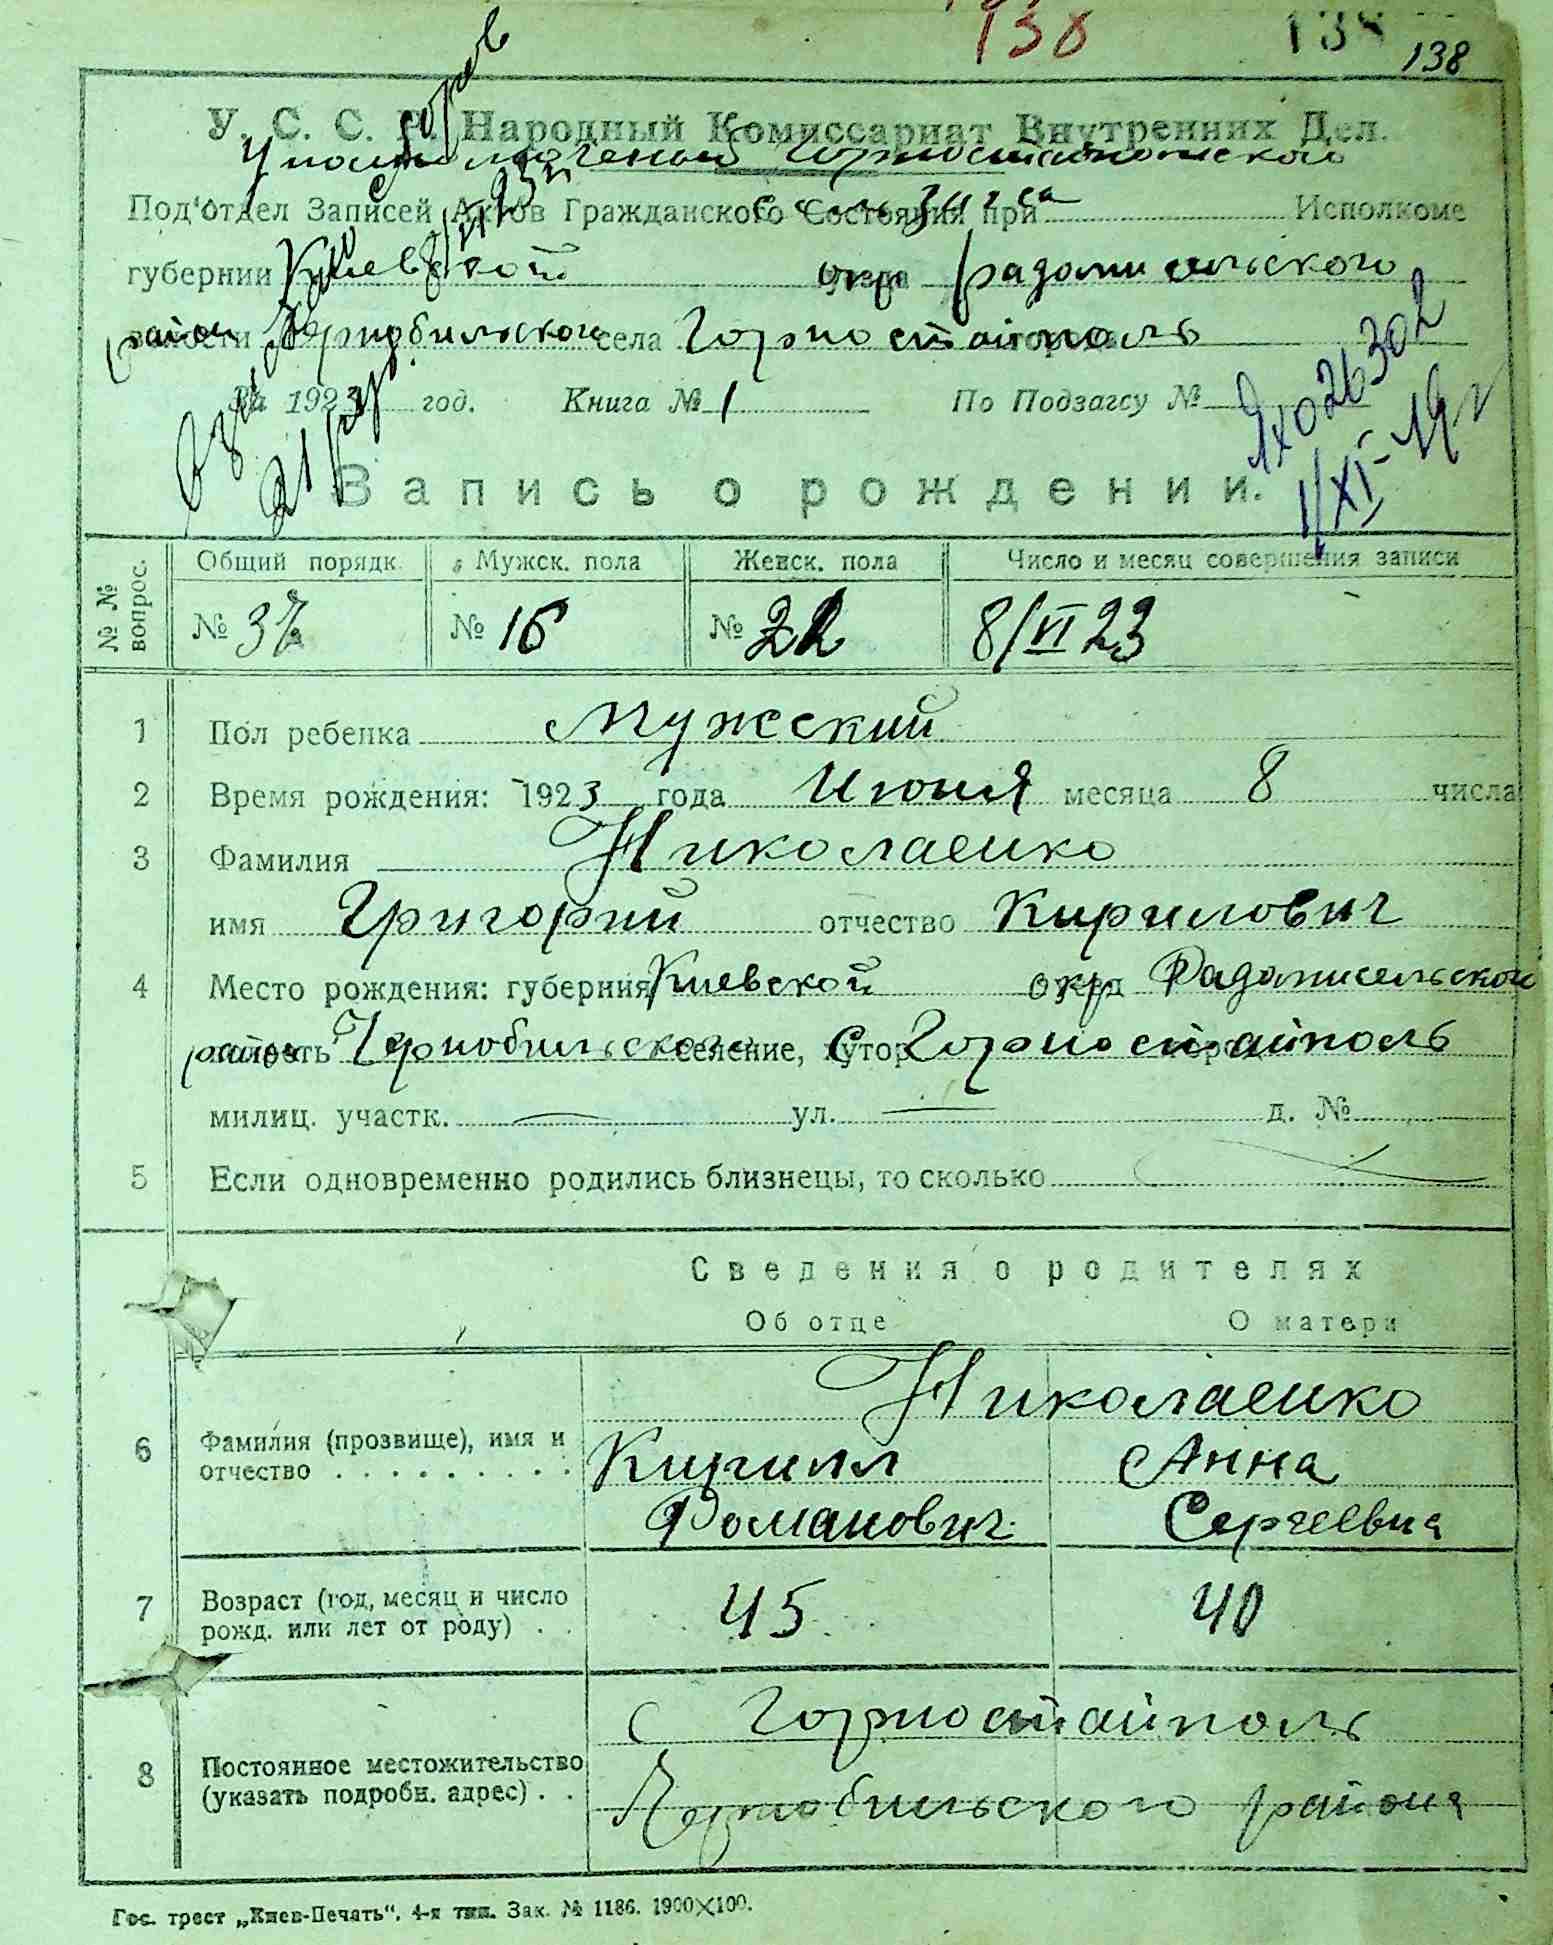 138
138
У. С. С. Р. Народный Комиссариат Внутренних Дел.
Уполномоченый Горностайпольского
Под'отдел Записей Актов Гражданского Состояния при Исполкоме
губернии Киевской окр Радомисльского
район Чернобильского села Горностайполь
За 1923 год. Книга № 1 По Подзагсу №
Запись о рождении.
№ № вопрос.
Общий порядк. Мужск. пола Женск. пола Число и месяц совершения записи
№ 37 № 16 № 22 8/VI 23
1 Пол ребенка Мужский
2 Время рождения: 1923 года Июня месяца 8 числа
3 Фамилия Николаенко
имя Григорий отчество Кирилович
4 Место рождения: губерния Киевской окр Радомисельского
район Чернобильского селение, хутор С Горностайполь
милиц. участк. ул. д. №
5 Если одновременно родились близнецы, то сколько
Сведения о родителях
Об отце О матери
Николаенко
6 Фамилия (прозвище), имя и отчество Кирилл Анна
Романович Сергеевна
7 Возраст (год, месяц и число рожд. или лет от роду) 45 40
С Горностайполь
8 Постоянное местожительство (указать подробн. адрес) Чернобильского района
Гос. трест „Киев-Печать“. 4-я тип. Зак. № 1186. 1900×100.